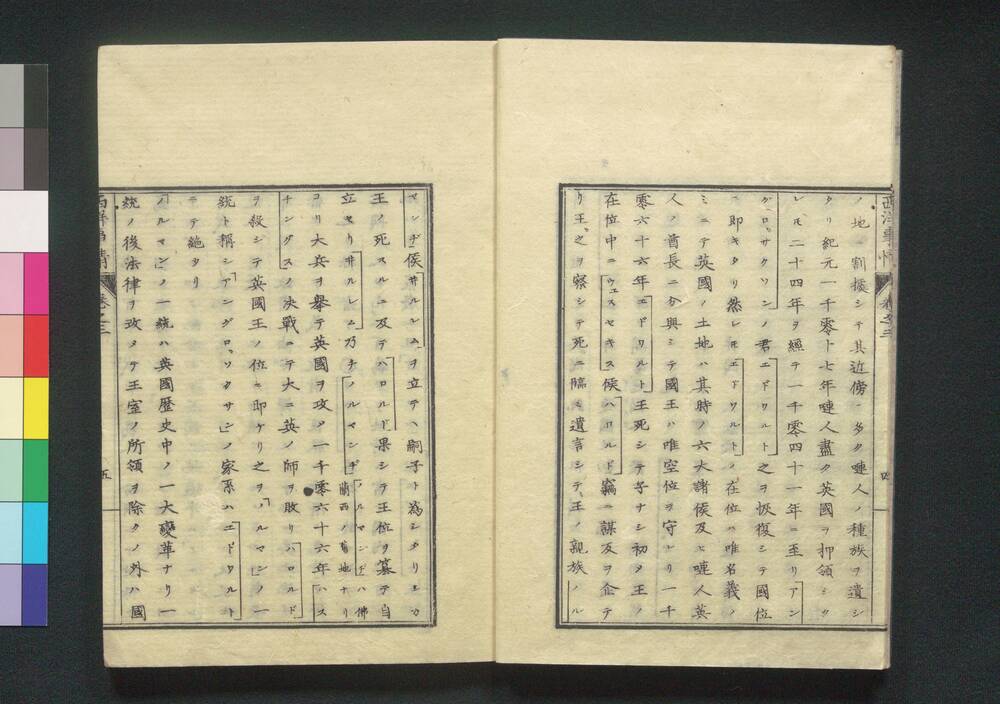 ノ地ニ割據シテ其近傍ニ多ク嗹人ノ種族ヲ遺シ
タリ紀元一千零十七年嗹人盡ク英國ヲ押領シタ
レ𪜈二十四年ヲ經テ一千零四十一年ニ至リアン
グロ、サクソンノ君エドワルト之ヲ恢復シテ國位
ニ即キタリ然レ𪜈エドワルトノ在位ハ唯名義ノ
ミニテ英國ノ土地ハ其時ノ六大諸侯及ヒ嗹人英
人ノ酋長ニ分與シテ國王ハ唯空位ヲ守レリ一千
零六十六年エドワルト王死シテ子ナシ初メ王ノ
在位中ニウェスセキス侯ハロルド竊ニ謀反ヲ企テ
リ王、之ヲ察シテ死ニ臨ミ遺言シテ、王ノ親族ノル
西洋事情 卷之三
四
マンヂー侯ヰルレムヲ立テヽ嗣子ト為シタリエド
王ノ死スルニ及テハロルド果シテ王位ヲ簒テ自
立セリヰルレム乃チノルマンヂーノルマンヂーハ佛蘭西ノ舊地ナリ
ヨリ大兵ヲ擧テ英國ヲ攻メ一千零六十六年ハス
チングスノ決戰ニテ大ニ英ノ師ヲ敗リハロルド
ヲ殺シテ英國王ノ位ニ即ケリ之ヲ「ノルマン」ノ一
統ト稱シ「アングロ、ソクサン」ノ家系ハエドワルト
ニテ絶タリ
「ノルマン」ノ一統ハ英國歴史中ノ一大變革ナリ一
統ノ後法律ヲ改メテ王室ノ所領ヲ除クノ外ハ國
西洋事情 卷之三
五